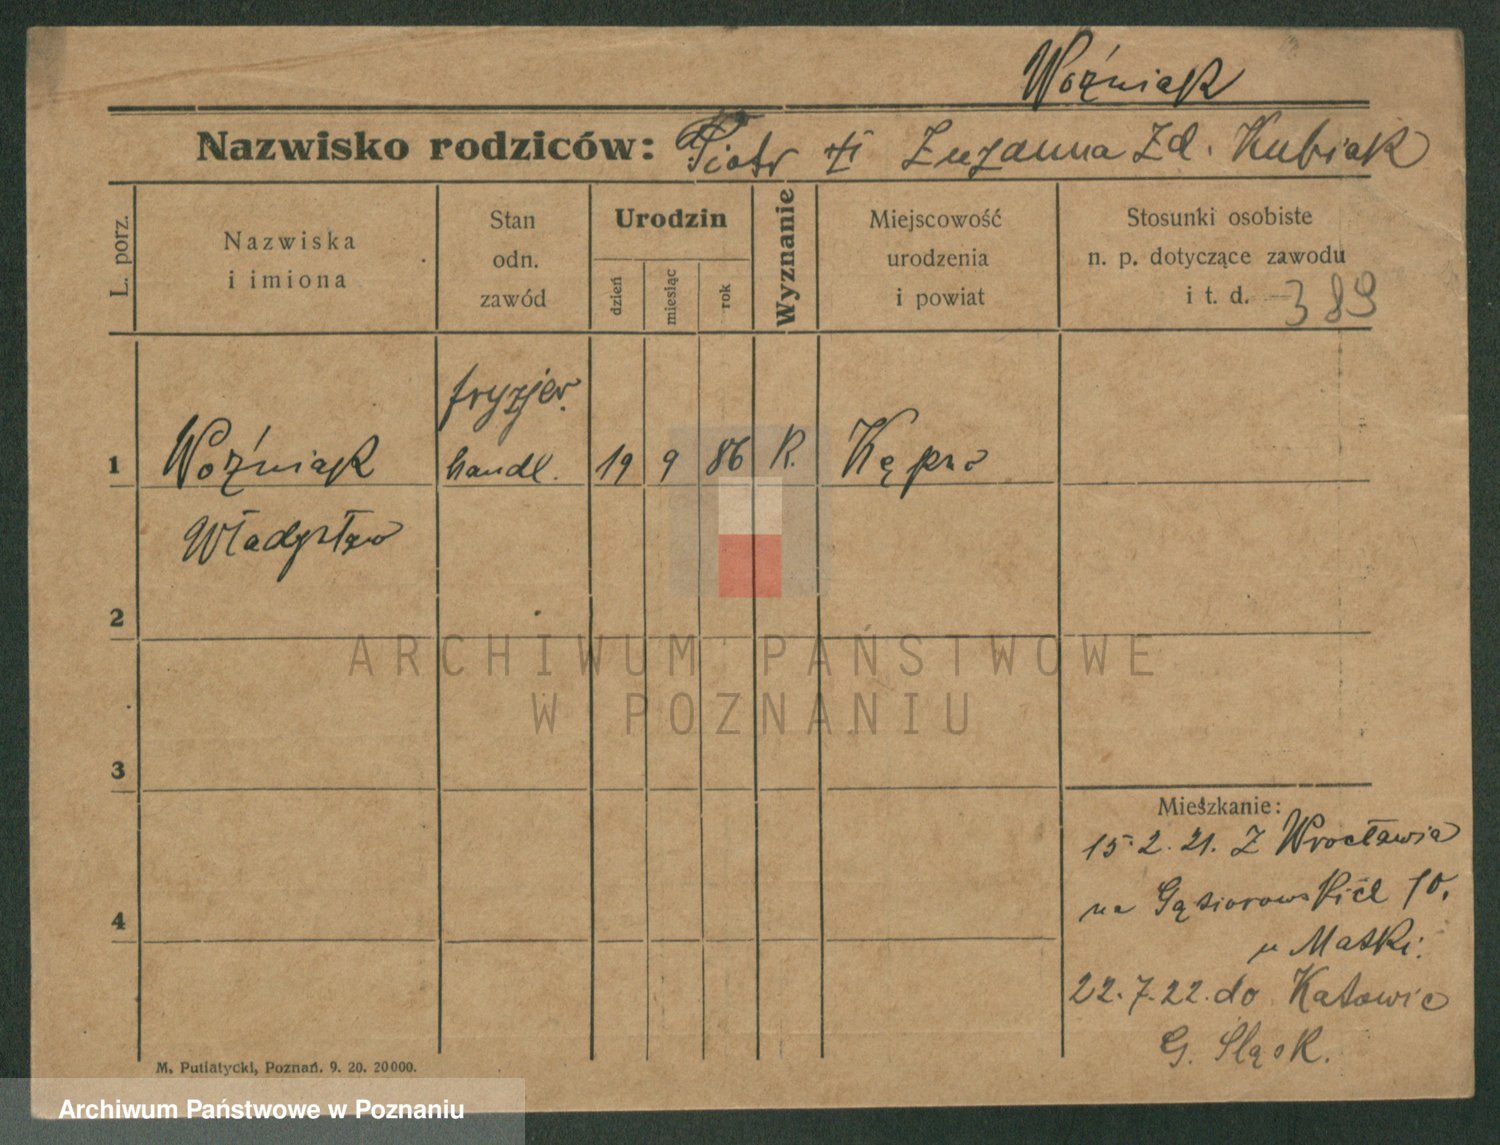 Woźniak
Nazwisko rodziców: Piotr Zuzanna Zd. Kubiak
L. porz.
Nazwiska
i imiona
Stan
odn.
zawód
Urodzin
dzień
miesiąc
rok
Wyznanie
Miejscowość
urodzenia
i powiat
Stosunki osobiste
n. p. dotyczące zawodu
i t. d. 389
fryzjer.
1 Woźniak handl. 19 9 86 R. Kępno
Władysław
2
3
4
Mieszkanie:
15.2.21. Z Wrocławia
na Gąsiorowskich 10.
u Matki.
22.7.22. do Katowic
G. Śląsk.
M. Putiatycki, Poznań. 9. 20. 20000.
ARCHIWUM PAŃSTWOWE
W POZNANIU
Archiwum Państwowe w Poznaniu